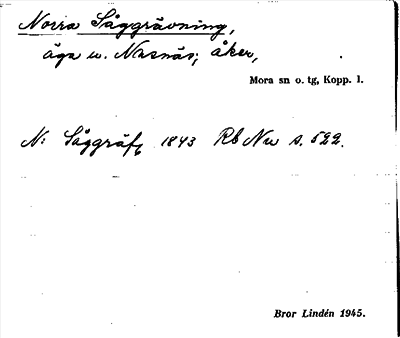 Norra Såggrävning,
äga u. Nusnäs; åker,
Mora sn o. tg, Kopp. l.
N: Såggräfg 1843 Rb Nu s. 522.
Bror Lindén 1945.